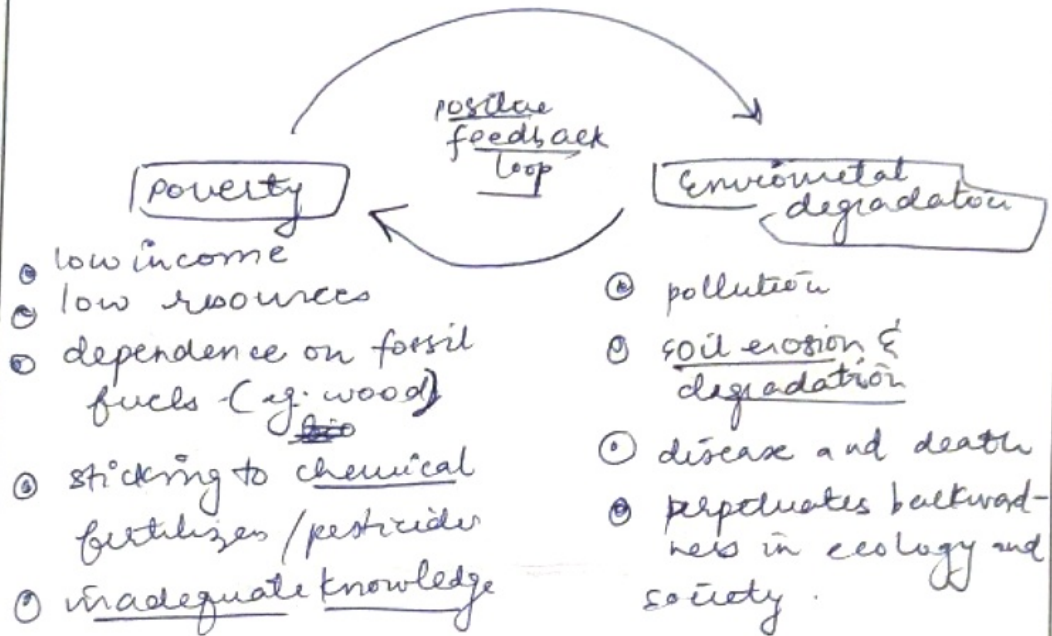 positive
feedback
loop
poverty
Enviormetal
degradation
low income
low resources
dependence on fossil
fuels - (eg. wood)
sticking to chemical
fertilizers / pesticides
inadequate knowledge
pollution
soil erosion &
degradation
disease and death
perpetuates backward-
ness in ecology and
society.